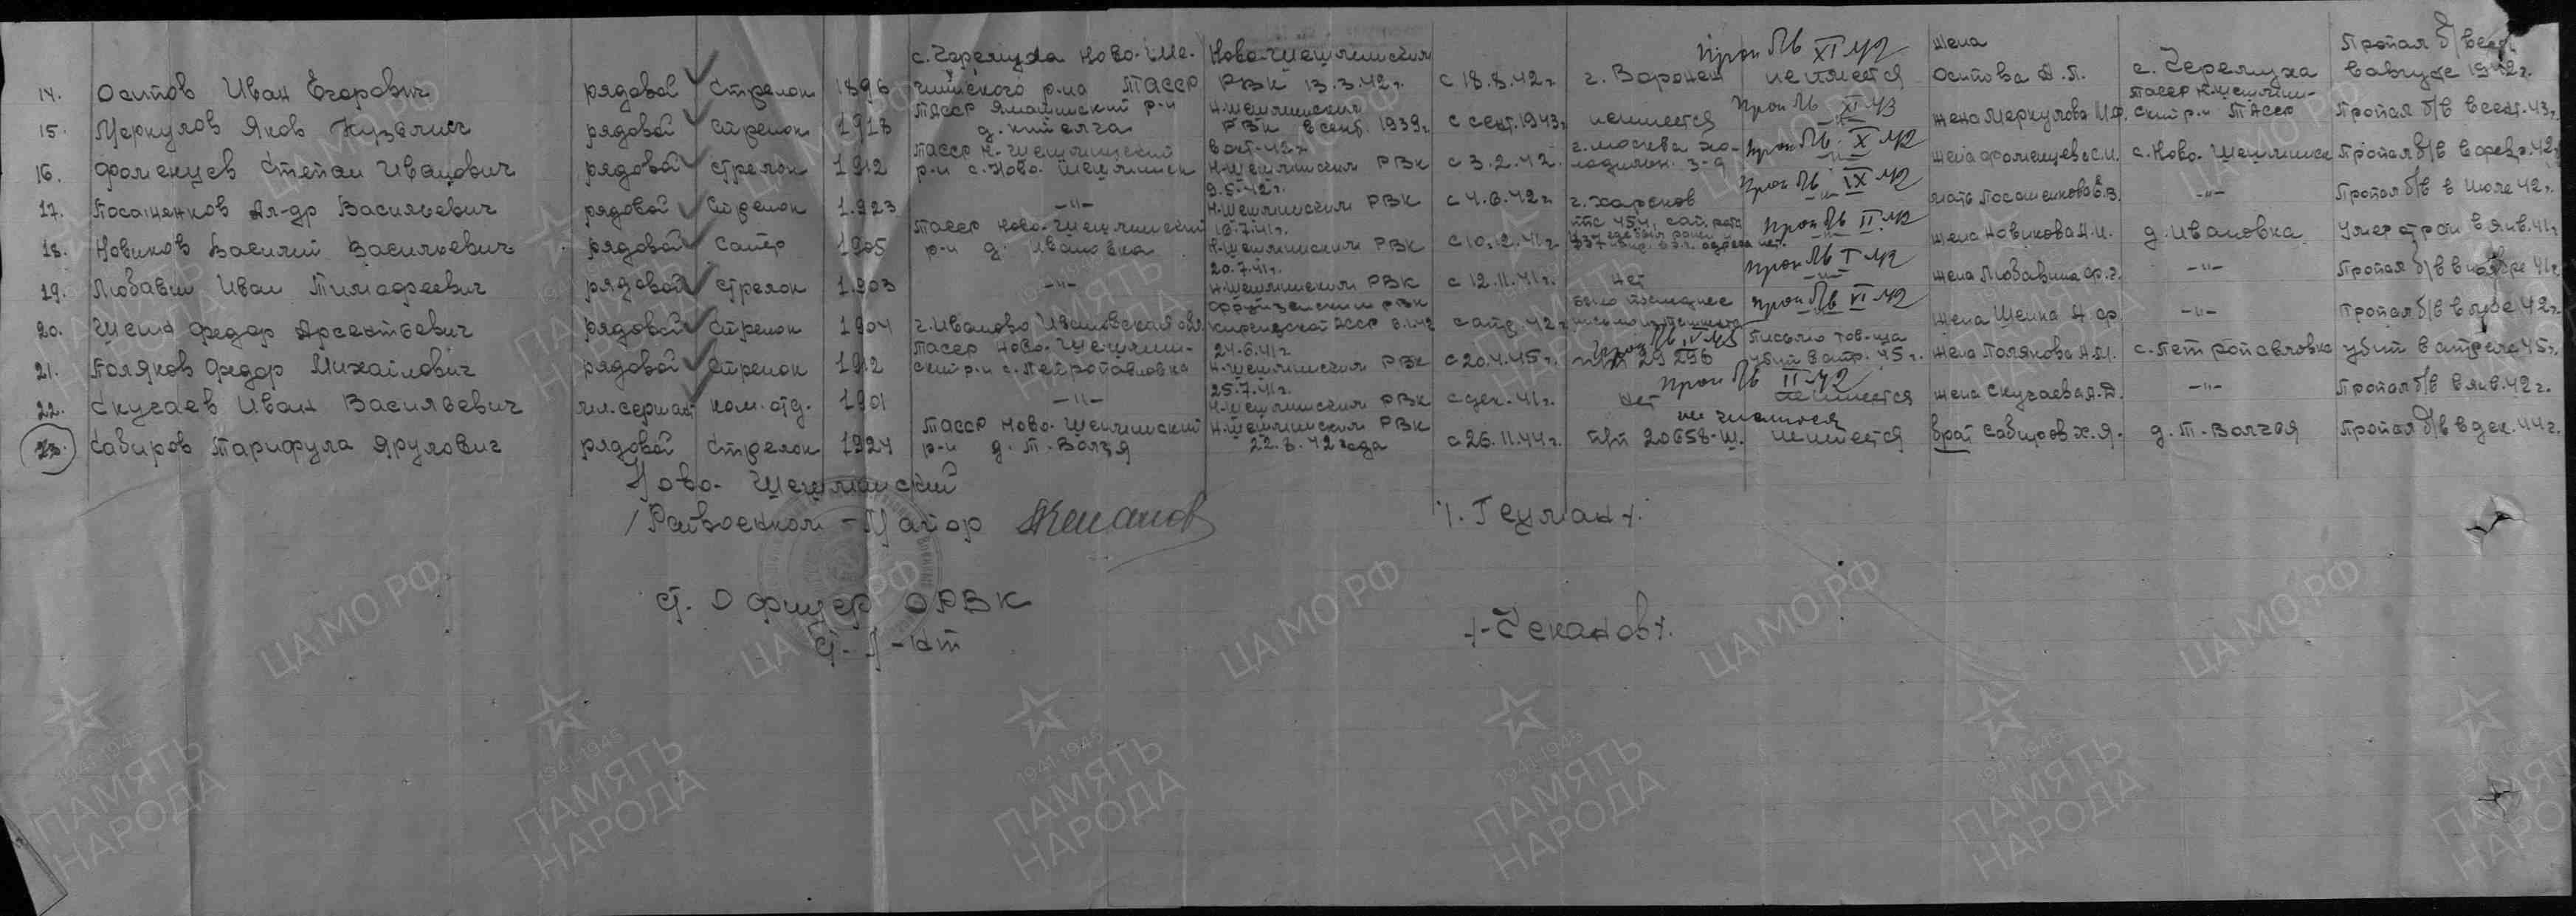 14. Осипов Иван Егорович рядовой стрелок 1896 с. Черемуха Ново-Ше-шминского р-на ТАССР Ново-Шешминский РВК 13.3.42г. с 18.8.42г. г. Воронеж не имеется проп б/в XI 42 жена Осипова А.П. с. Черемуха Пропал б/вести в августе 1942г.
15. Меркулов Яков Кузьмич рядовой стрелок 1918 ТАССР Ямашинский р-н д. Кителга Н-Шешминский РВК в сент. 1939г. с сент. 1943г. не имеется проп б/в XI 43 -"- жена Меркулова ТАССР Н-Шешминский р-н ТАССР Пропал б/в в сент. 43г.
16. Фоменцев Степан Иванович рядовой стрелок 1912 ТАССР Н-Шешминский р-н с. Ново-Шешминск Н-Шешминский РВК с 3.2.42. г. Москва проп б/в X 42 -"- жена Фоменцева С.И. с. Ново-Шешминск Пропал б/в в февр. 42г.
17. Посашенков Ал-др Васильевич рядовой стрелок 1923 -"- 9.5.42г. Н-Шешминский РВК с 4.6.42г. г. Харьков проп б/в IX 42 -"- мать Посашенкова Е.В. -"- Пропал б/в в июле 42г.
18. Новиков Василий Васильевич рядовой сапер 1905 ТАССР Ново-Шешминский р-н д. Ивановка 16.7.41г. Н-Шешминский РВК с 10.12.41г. ппс 454 сап. рота проп б/в II 42 жена Новикова А.И. д. Ивановка Умер от ран в янв. 41г.
19. Любавин Иван Тимофеевич рядовой стрелок 1903 -"- 20.7.41г. Н-Шешминский РВК с 12.11.41г. нет проп б/в I 42 -"- жена Любавина -"- Пропал б/в в ноябре 41г.
20. Шеин Федор Арсентьевич рядовой стрелок 1904 г. Иваново Ивановская обл. Фрунзенский РВК Киргизской ССР с апр. 42г. было последнее письмо проп б/в VI 42 -"- жена Шеина А.Ф. -"- Пропал б/в 42г.
21. Поляков Федор Михайлович рядовой стрелок 1912 ТАССР Ново-Шешминский р-н с. Петропавловка 24.6.41г. Н-Шешминский РВК с 20.4.45г. п/п 29296 проп б/в V 45 Письмо тов-ща убит в апр. 45г. жена Полякова А.М. с. Петропавловка убит в апреле 45г.
22. Скучаев Иван Васильевич мл. сержант ком. отд. 1901 -"- 25.7.41г. Н-Шешминский РВК с дек. 41г. нет проп б/в II-42 не имеется жена Скучаева А.Д. -"- Пропал б/в в янв. 42г.
23. Сабиров Тарифула Ярулович рядовой стрелок 1924 ТАССР Ново-Шешминский р-н д. Т. Волчья Н-Шешминский РВК 22.8.42 года с 26.11.44г. п/п 20658-Ш. не числится не имеется брат Сабиров Х.Я. д. Т. Волчья Пропал б/в в дек. 44г.
Ново-Шешминский
/Райвоенком - Майор /. Геуман /.
Ст. Офицер ОРВК
Ст. Л-нт /-Чеканов/.
ЦАМО.РФ
1941-1945
ПАМЯТЬ
НАРОДА